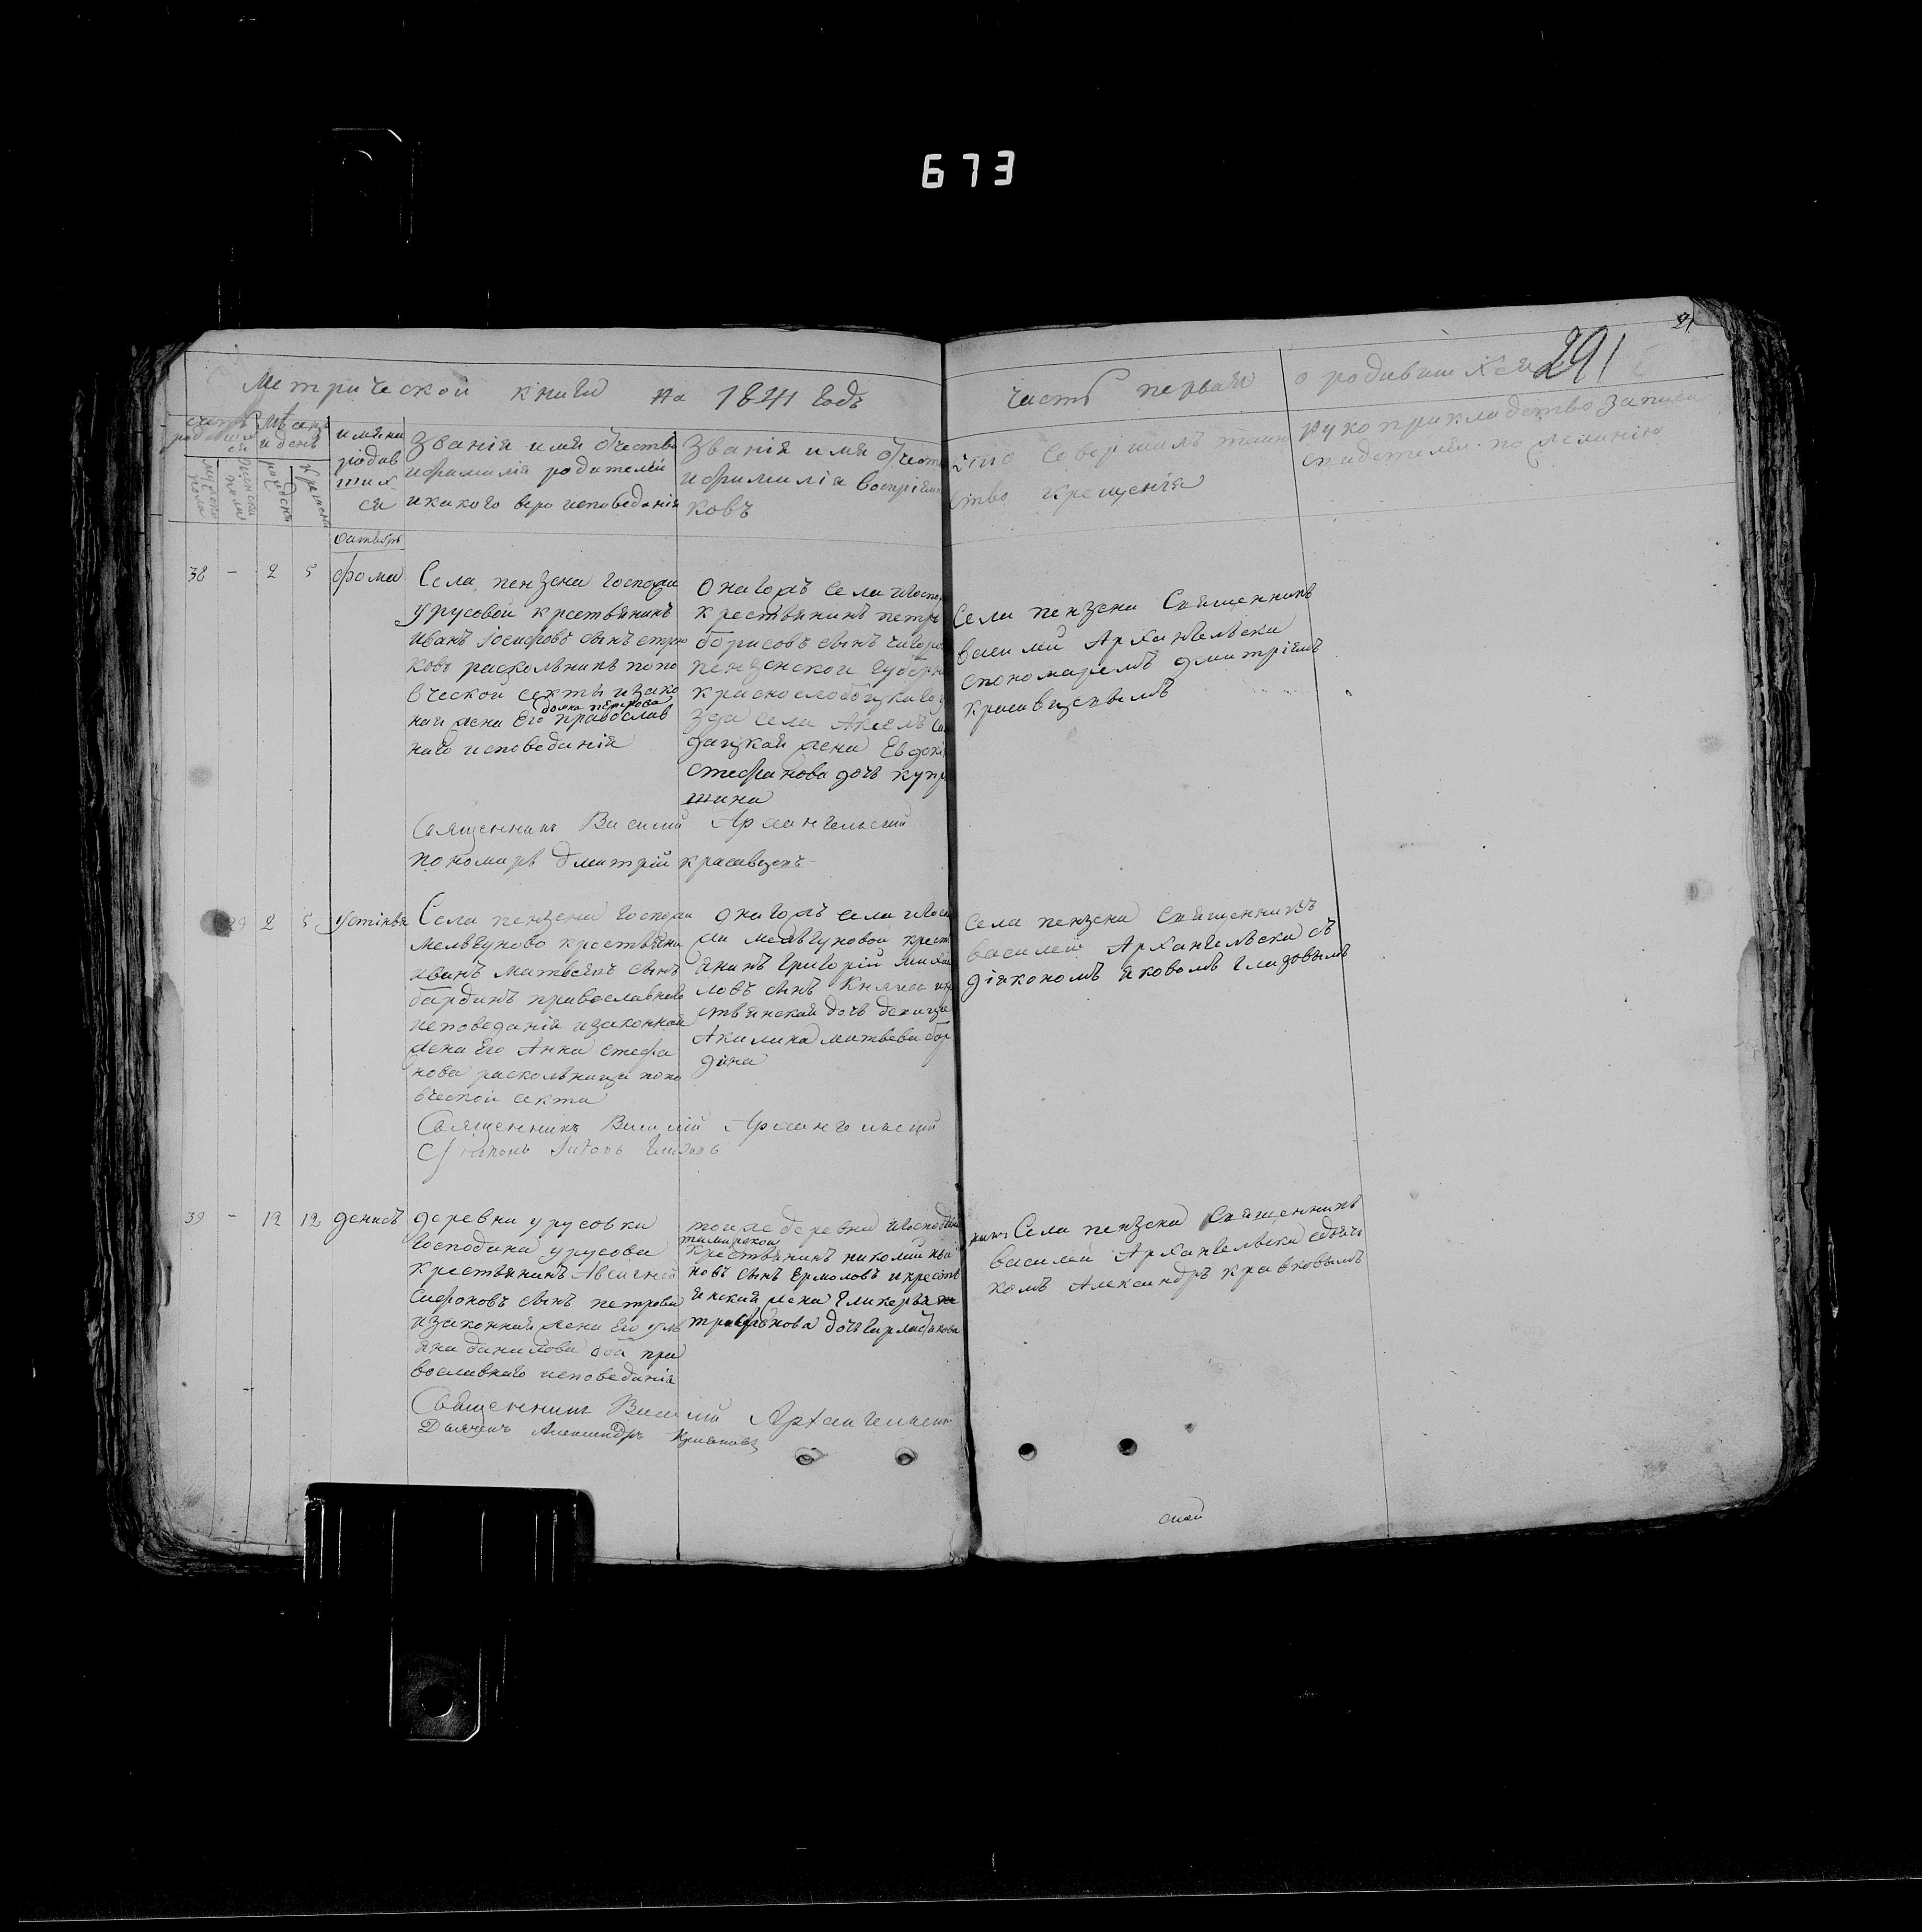 673
291
Метрической книги на 1841 годъ
часть первая о родившихся
счетъ родившихся
мужеска пола
женска пола
мѣсяцъ и день
рождения
крещения
имяна
родав
ших
ся
Званія имя отчество
и фамилія родителей
и какого вероисповеданія
Званія имя отчест
и фамилія воспріем
ковъ
кто совершалъ таин
ство крещенія
рукоприкладство записи
свидетелей по желанію
октябрь
38 - 2 5 фома
Села пензена госпожи
урусовой крестьянинъ
иванъ Iосифовъ сынъ
ковъ раскольникъ попо
вческой секты и зако
ная жена Его домна петрова православ
наго исповеданія
Онагожъ села
крестьянинъ петръ
борисовъ сынъ
пензенской губерн
краснослободцкаго
зда села
дацкая жена Евдокі
стефанова дочь купр
шина
Села пензена Священникъ
василий Архангельски
спономаремъ дмитріемъ
красавцевымъ
Священникъ Василий Архангельский
пономарь Дмитрій красавцевъ
29 2 5 устінья
Села пензена госпожи
мельгуново крестьяни
иванъ матвеевъ сынъ
бардинъ православнаго
исповеданія и законной
жена Его Анна стефа
нова раскольница попо
вческой секты
Онагожъ села
жи мельгуновой крест
янинъ григорій михаи
ловъ сынъ
стьянской дочь девица
Акилина матвева бар
дина
Села пензена Священникъ
василей Архангельски съ
діакономъ яковомъ гладовымъ
Священникъ Василій Архангельский
39 - 12 12 денисъ
деревни урусовки
господина урусова
крестьянинъ Авсигней
сафоновъ сынъ петрова
и законная жена Его уль
яна данилова оба пра
вославнаго исповеданія
тойже деревни
крестьянинъ николай ива
новъ сынъ Ермоловъ и крестья
инская жена гликерья
трифонова дочь
Села пензена Священникъ
василей Архангельски сдьяч
комъ Александръ кравковымъ
Священникъ Василий Архангельский
Дьячекъ Александръ